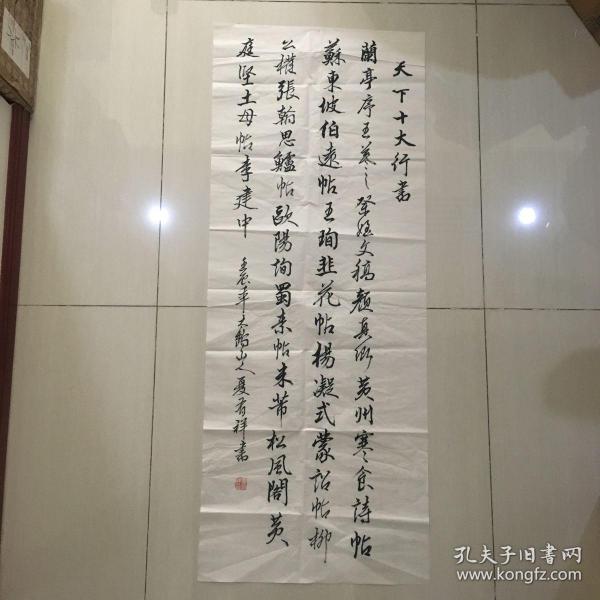 天下十大行書
蘭亭序王羲之祭姪文稿顏真卿黃州寒食詩帖
蘇東坡伯遠帖王珣韭花帖楊凝式蒙詔帖柳
公權張翰思鱸帖歐陽詢蜀素帖米芾松風閣黃
庭堅土母帖李建中
壬辰年天台山人夏有祥書
孔夫子旧书网
www.kongfz.com